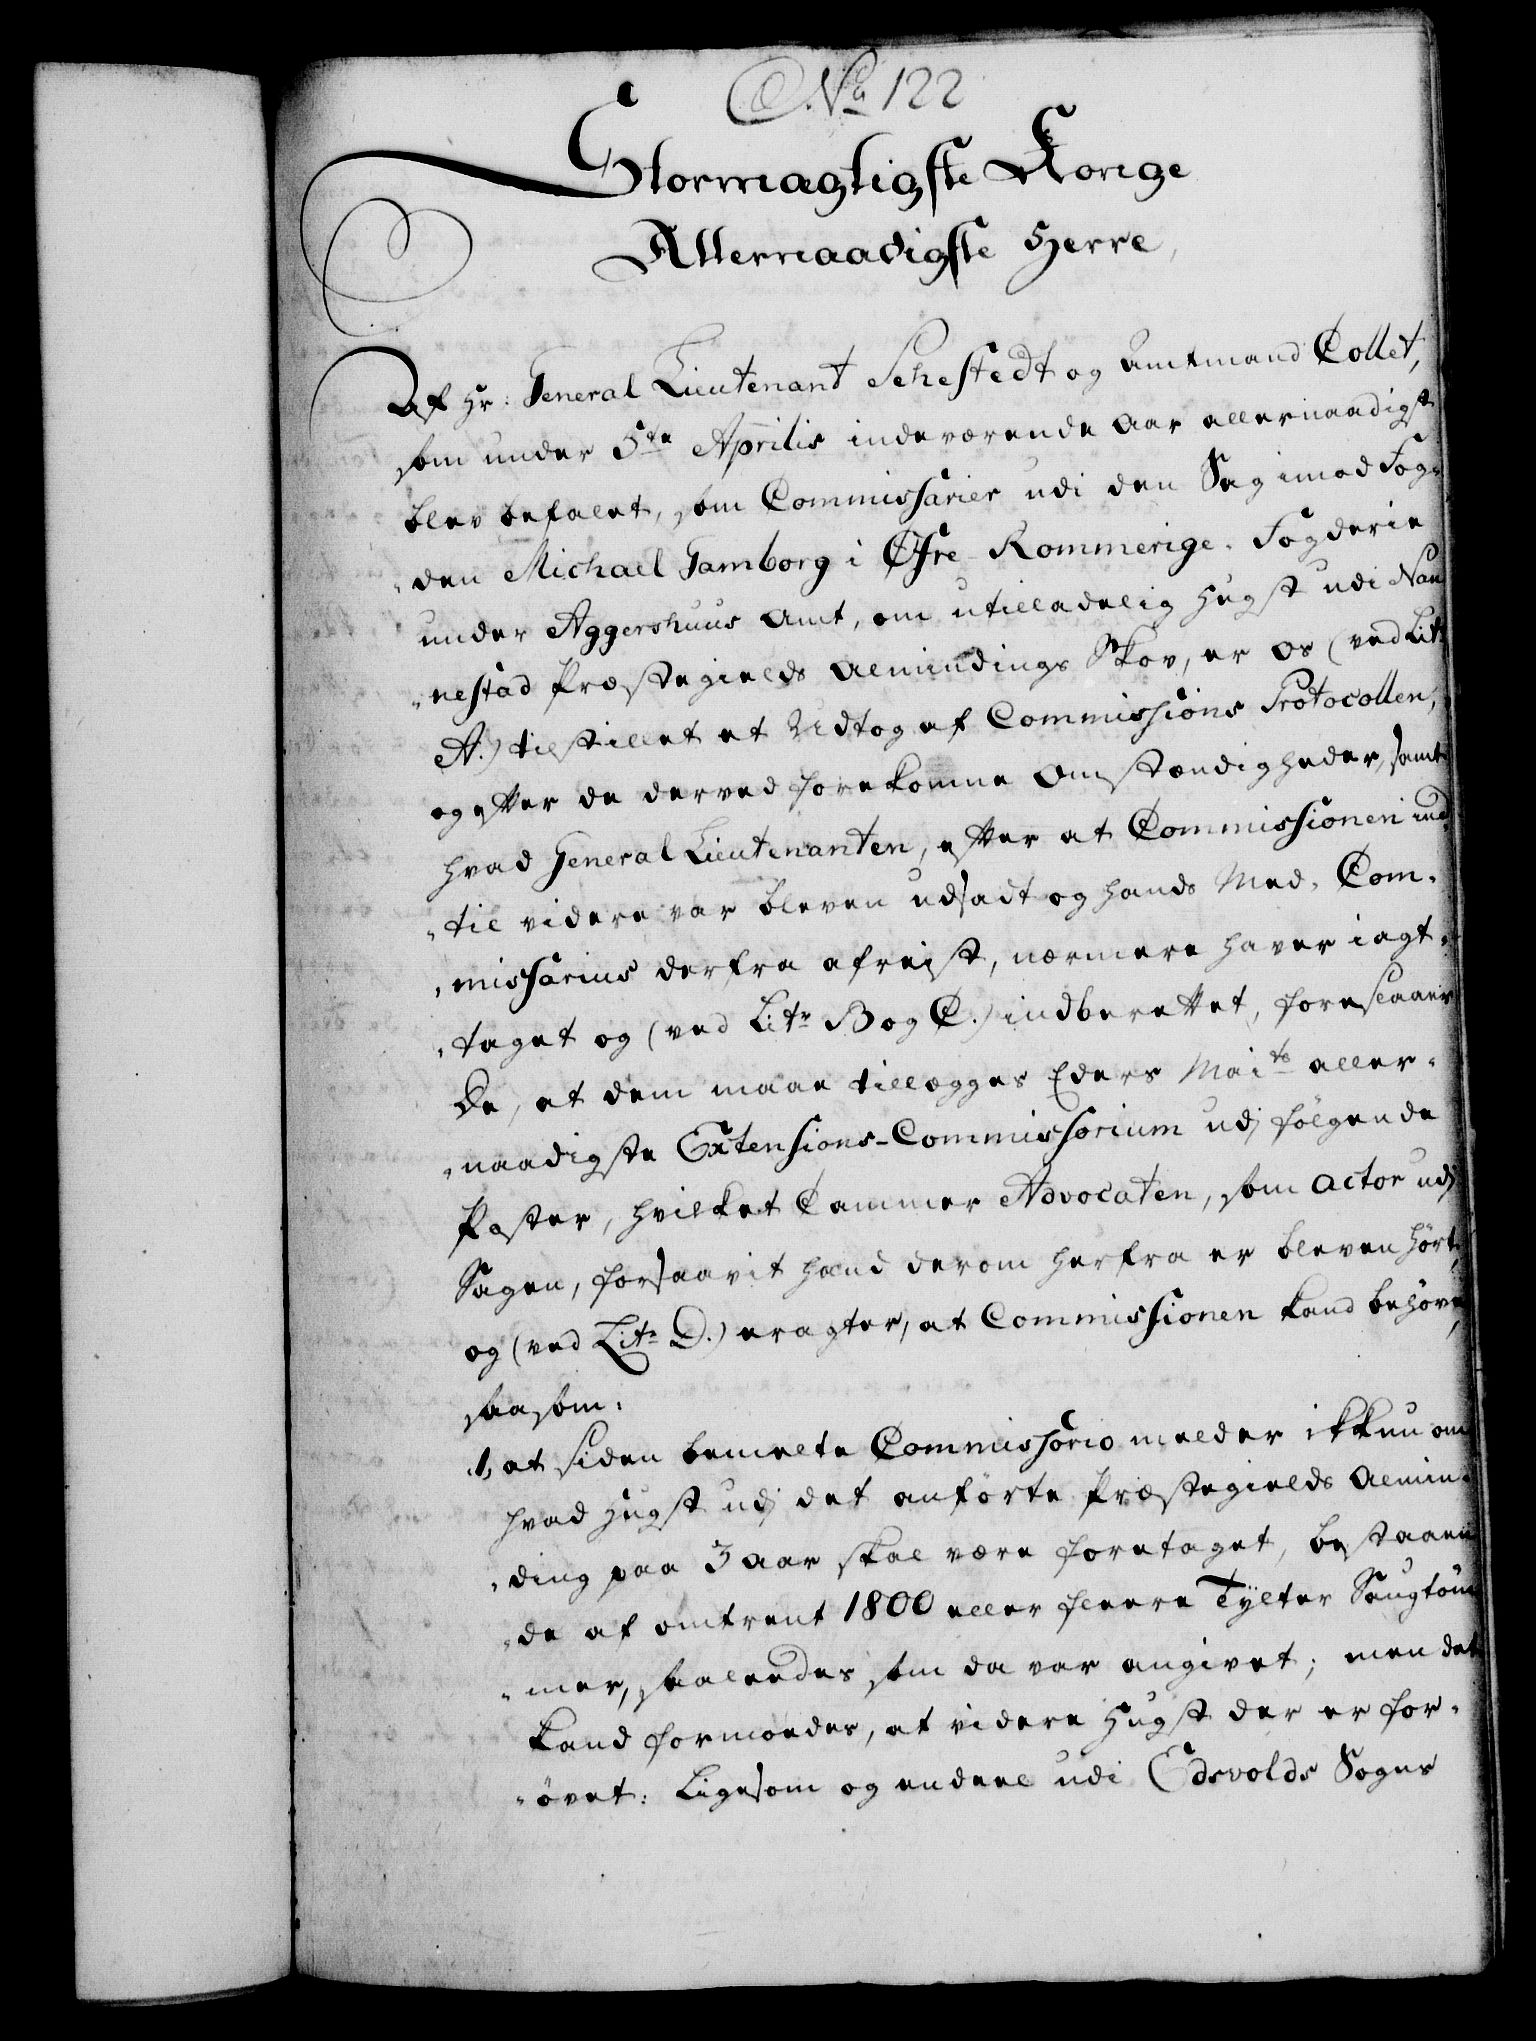 No 122
Stormægtigste Konge
Allernaadigste Herre,
Af Hr: General Lieutenant Sehestedt og Amtmand Collet,
som under 5te Aprilis indeværende Aar allernaadigst
blev befalet, som Commissarier udi den Sag imod Fog-
„den Michael Gamborg i Øfre-Rommerige-Fogderie
under Aggershuus Amt, om utilladelig Hugst udi Nan
„nestad Præstegields Almindings Skov, er os (ved Litr
A.) tilstillet et Udtog af Commissions Protocollen,
og efter de derved forekomne Omstændigheder, samt
hvad General Lieutenanten, efter at Commissionen ind-
„til videre var bleven udsadt og hands Med-Com-
„missarius derfra afreist, nærmere haver iagt-
„taget og (ved Litr B og C.) indberettet, foreslaaer
De, at dem maae tillægges Eders Maits aller-
„naadigste Extensions-Commissorium udj følgende
Poster, hvilket Cammer Advocaten, som Actor udj
Sagen, forsaavit hand derom herfra er bleven hørt,
og (ved Litr D.) eragter, at Commissionen kand behøve,
saasom:
1, at siden bemelte Commissorio melder ikkun om
hvad Hugst udj det anførte Præstegields Almin-
„ding paa 3 Aar skal være foretaget, bestaaen
„de af omtrent 1800 eller fleere Tylter Saugtøm
„mer, saaledes som da var angivet; men det
kand formodes, at videre Hugst der er for-
„øvet: Ligesom og endeel udi Edsvolds Sogns